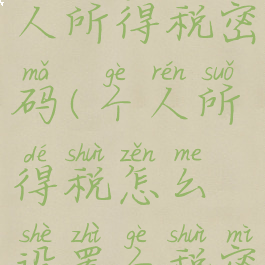 人所得税密
mǎ gè rén suǒ
码(个人所
dé shuì zěn me
得税怎么
shè zhì gè shuì mì
设置个税密